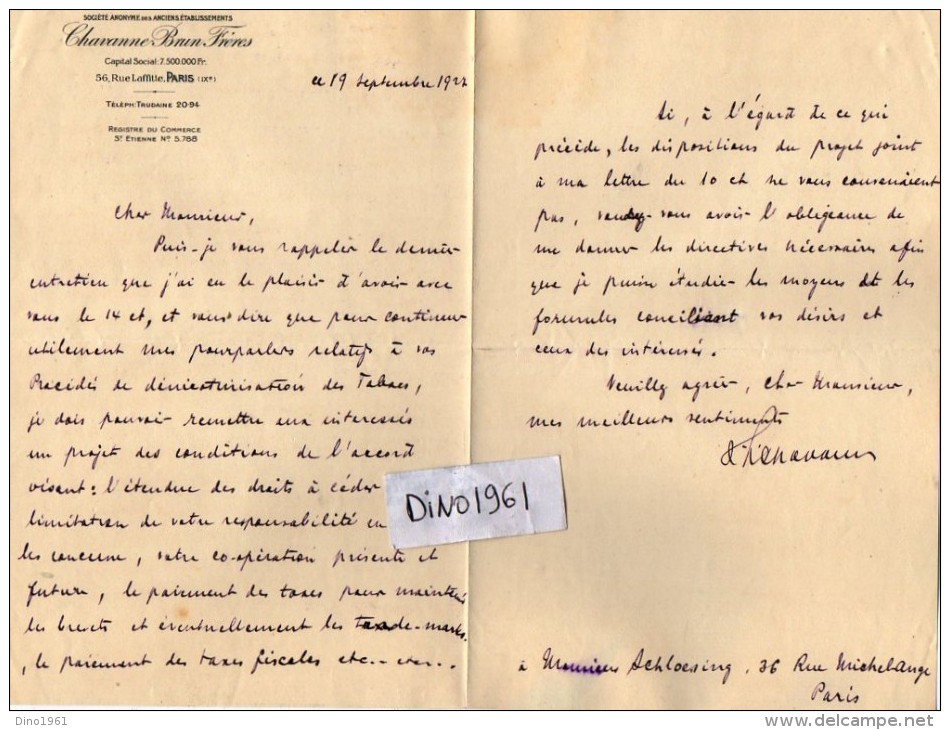 SOCIÉTÉ ANONYME DES ANCIENS ÉTABLISSEMENTS
Chavanne-Brun Frères
Capital Social: 7.500.000 Fr.
56, Rue Laffitte, PARIS (IXe)
TÉLÉPH: TRUDAINE 20-94
REGISTRE DU COMMERCE
St ETIENNE No 5.788
ce 19 Septembre 1927
Cher Monsieur,
Puis-je vous rappeler le dernier
entretien que j'ai eu le plaisir d'avoir avec
vous le 14 ct, et vous dire que pour continuer
utilement mes pourparlers relatifs à vos
Procédés de dénicotinisation des Tabacs,
je dois pouvoir remettre aux intéressés
un projet des conditions de l'accord
visant: l'étendue des droits à céder
limitation de votre responsabilité en
les concerne, votre co-opération présente et
future, le paiement des taxes pour maintenir
les brevets et éventuellement les trade-marks.
, le paiement des taxes fiscales etc.. etc...
Si, à l'égard de ce qui
précède, les dispositions du projet joint
à ma lettre du 10 ct ne vous convenaient
pas, voudrez-vous avoir l'obligeance de
me donner les directives nécessaires afin
que je puisse étudier les moyens et les
formules conciliant vos désirs et
ceux des intéressés.
Veuillez agréer, Cher Monsieur,
mes meilleurs sentiments
Chavanne
à Monsieur Schloesing, 36 Rue Michelange
Paris
DiNO1961
Dino1961
www.delcampe.net